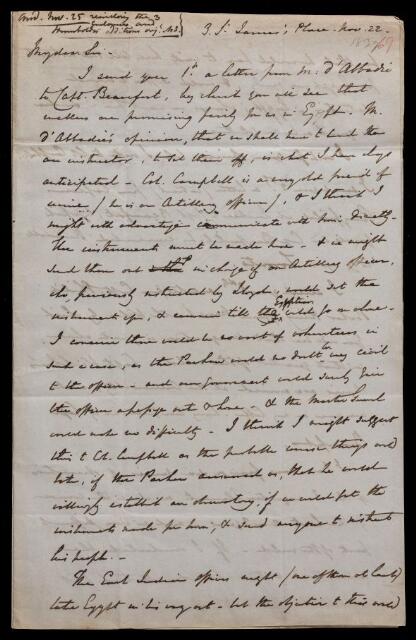 And. Nov. 25 returning the 3
Enclosures and
Humboldt's
3. St. James's Place. Nov. 22.
My dear Sir -
I send you 1st a letter from M. d'Abbadie
to Capt. Beaufort, by which you will see that
matters are promising fairly for us in Egypt. M.
d'Abbadie's opinion, that we shall have to send them
an instructor, to set them off, is what I have always
anticipated - Col. Campbell is a very old friend of
mine (he is an Artillery officer), & I think I
might with advantage communicate with him directly -
The instruments must be made here - & we might
send them out in charge of an Artillery officer,
who previously instructed by Lloyd, would set the
instruments up, & remain till the Egyptians could go on alone -
I conceive there would be no want of volunteers in
such a case, as the Pacha would no doubt be very civil
to the officer - and our government would surely give
the officer a passage out & home & the Master General
would make no difficulty - I think I might suggest
this to Col. Campbell as the probable course things would
take, if the Pacha announced us, that he would
willingly establish an observatory, if we would get the
instruments made for him, & send anyone to instruct
his people. -
The East Indian officers might (one of them at least)
take Egypt in his way out - but the objection to this would